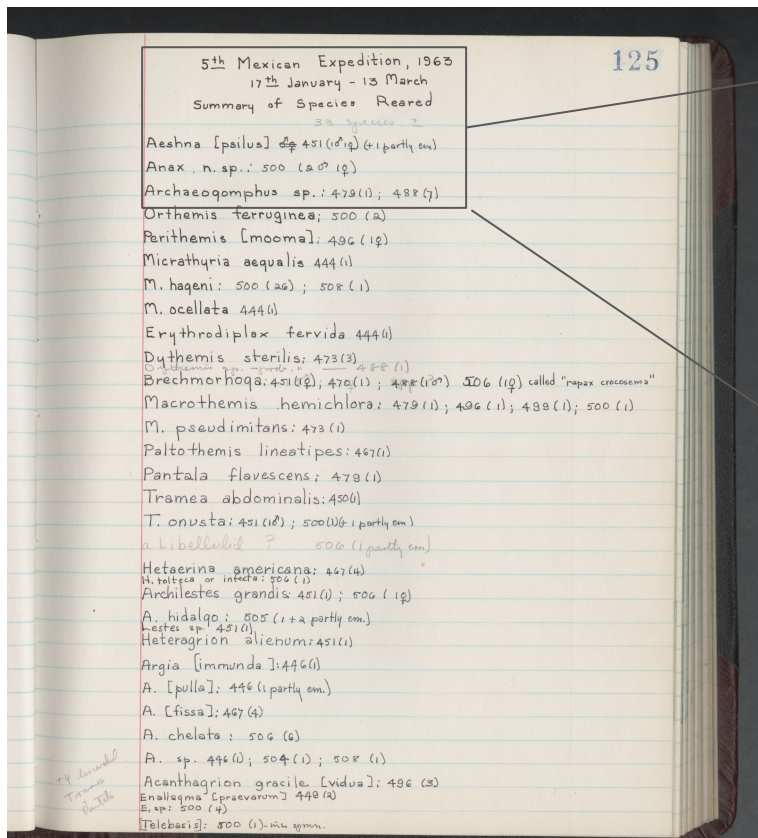 125
5th Mexican Expedition, 1963
17th January - 13 March
Summary of Species Reared
33 species ±
Aeshna [psilus] 451 (1♂ 1♀) (+1 partly em)
Anax n. sp.: 500 (2♂ 1♀)
Archaeogomphus sp.: 479(1); 488(7)
Orthemis ferruginea; 500 (2)
Perithemis [mooma]: 496 (1♀)
Micrathyria aequalis 444(1)
M. hageni: 500 (26); 508 (1)
M. ocellata 444(1)
Erythrodiplax fervida 444(1)
Dythemis sterilis: 473(3)
Dythemis sp. — 488 (1)
Brechmorhoga: 451(1♀); 470(1); 488(1♂) 506 (1♀) called "rapax crocosema"
Macrothemis hemichlora: 479(1); 496(1); 499(1); 500 (1)
M. pseudimitans: 473 (1)
Paltothemis lineatipes: 467(1)
Pantala flavescens; 479(1)
Tramea abdominalis: 450(1)
T. onusta: 451 (1♂); 500(1)(+ 1 partly em)
a Libellulid ? 506 (1 partly em)
Hetaerina americana: 467(4)
H. tolteca or infecta: 506 (1)
Archilestes grandis: 451(1); 506 (1♀)
A. hidalgo: 505 (1 + 2 partly em.)
Lestes sp. 451(1)
Heteragrion alienum: 451(1)
Argia [immunda]: 446(1)
A. [pulla]: 446 (1 partly em.)
A. [fissa]: 467 (4)
A. chelata: 506 (6)
A. sp. 446(1); 504(1); 508 (1)
+4 discarded
Tramea
Pantala
Acanthagrion gracile [vidua]: 496 (3)
Enallagma [praevarum] 448 (2)
E. sp: 500 (4)
[Telebasis]: 500 (1)-